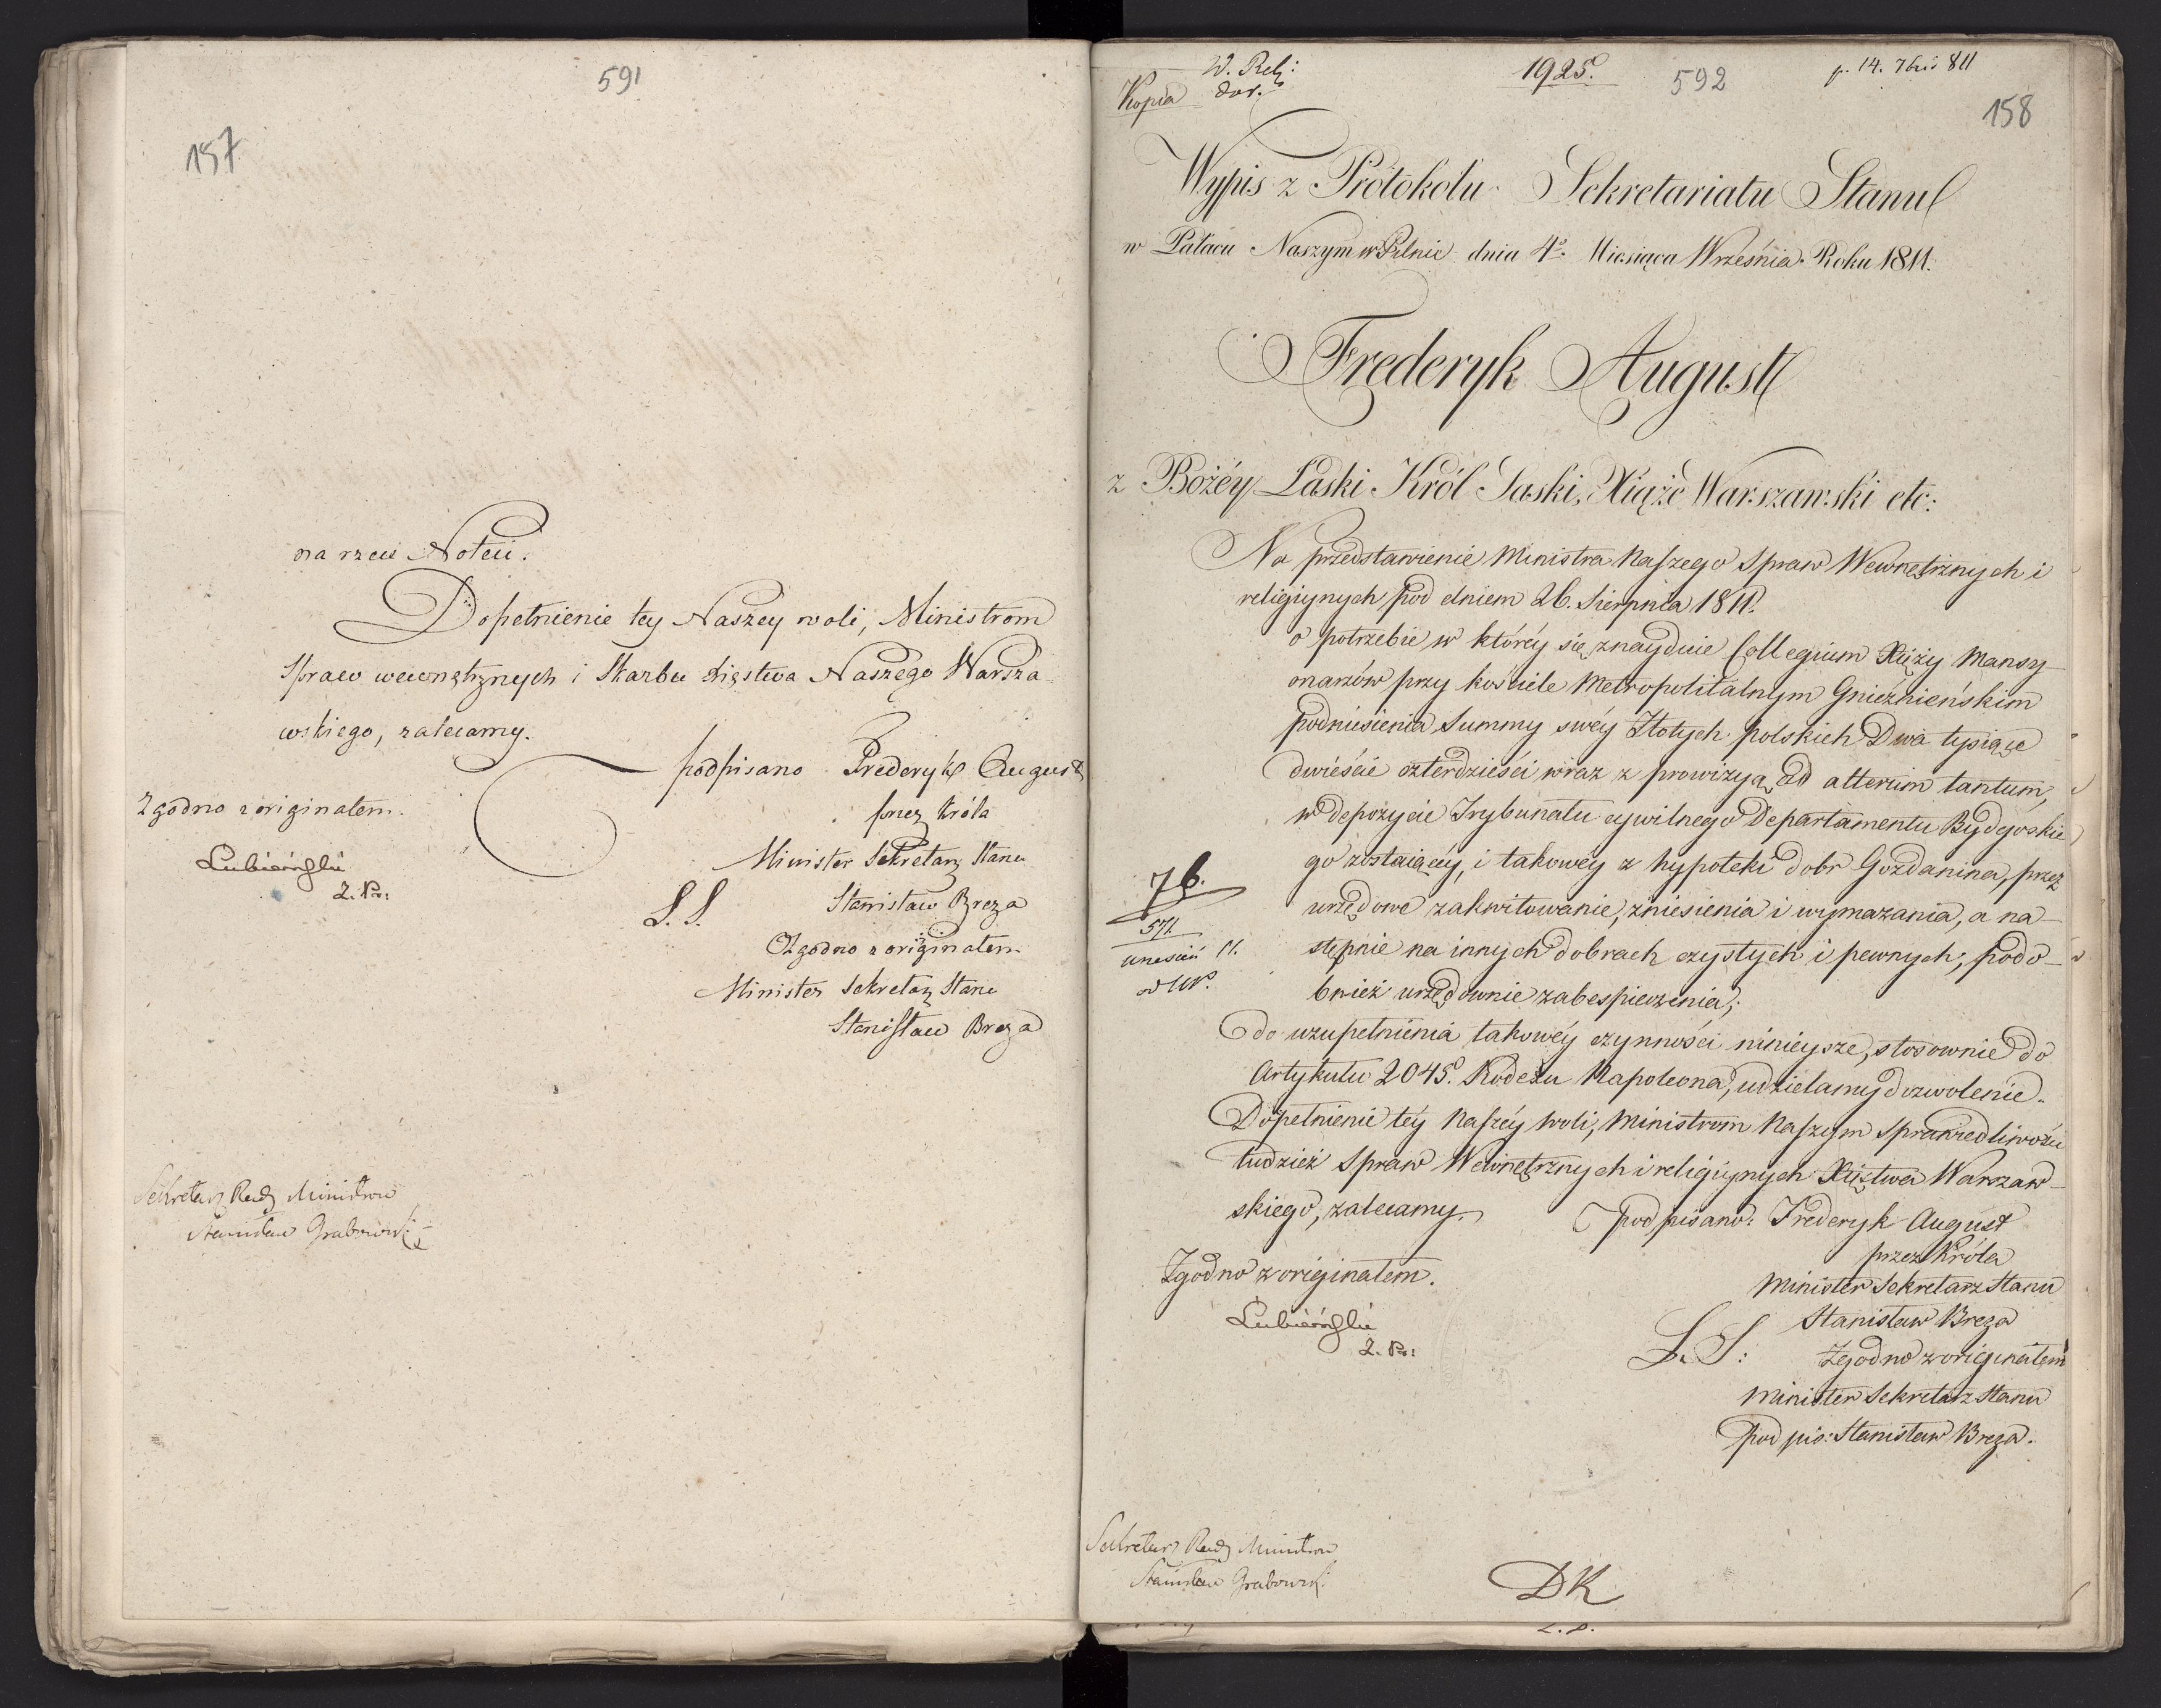 591
157
na rzece Noteci.
Dopełnienie tey Naszey woli, Ministrom
Spraw wewnętrznych i Skarbu Xięstwa Naszego Warsza-
wskiego, zalecamy.
podpisano Frederyk August
przez Króla
Minister Sekretarz Stanu
L. S. Stanisław Breza
Zgodno z originałem
Minister Sekretarz Stanu
Stanisław Breza
Zgodno z originałem.
Sekretarz Rady Ministrow
Stanisław Grabowski
W. Rel:
Kopia
1925.
592
p. 14. 7bris 811
158
Wypis z Protokołu Sekretariatu Stanu
w Pałacu Naszym w Pilnic dnia 4o. Miesiąca Września Roku 1811.
Frederyk August
z Bożéy Łaski Król Saski, Xiąże Warszawski etc:
Na przedstawienie Ministra Naszego Spraw Wewnętrznych i
religiynych pod dniem 26. Sierpnia 1811.
o potrzebie w któréy się znayduie Collegium Xięży Mansy-
onarzów przy kościele Metropolitalnym Gnieźnieńskim
podniesienia Summy swéy Złotych polskich Dwa tysiące
dwieście czterdzieści wraz z prowizyą ad alterum tantum,
w depozycie Trybunału cywilnego Departamentu Bydgoskie-
go zostaiącéy, i takowéy z hypoteki dobr Gozdanina, przez
urzędowe zakwitowanie, zniesienia i wymazania, a na-
stępnie na innych dobrach czystych i pewnych, podo-
bnież urzędownie zabespieczenia;
do uzupełnienia takowéy czynności ninieysze, stosownie do
Artykułu 2045. Kodexu Napoleona, udzielamy dozwolenie.
Dopełnienie téy Naszéy woli, Ministrom Naszym Sprawiedliwości
tudzież Spraw Wewnętrznych i religiynych Xięstwa Warszaw-
skiego, zalecamy.
podpisano: Frederyk August
przez Króla
Minister Sekretarz Stanu
Stanisław Breza
L. S: Zgodno z originałem
Minister Sekretarz Stanu
podpis: Stanisław Breza.
Zgodno z originałem.
76.
571.
Sekretarz Rady Ministrow
Stanisław Grabowski
DK